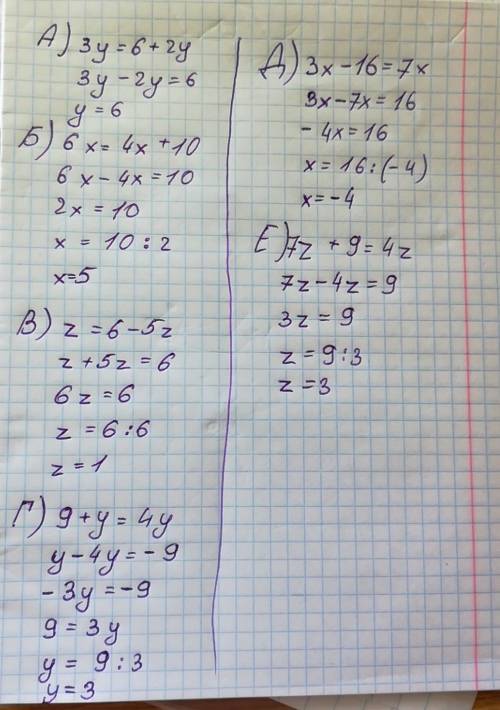 А) 3y = 6 + 2y
3y - 2y = 6
y = 6
Б) 6x = 4x + 10
6x - 4x = 10
2x = 10
x = 10 : 2
x = 5
В) z = 6 - 5z
z + 5z = 6
6z = 6
z = 6 : 6
z = 1
Г) 9 + y = 4y
y - 4y = - 9
- 3y = - 9
9 = 3y
y = 9 : 3
y = 3
Д) 3x - 16 = 7x
3x - 7x = 16
- 4x = 16
x = 16 : (- 4)
x = - 4
Е) 7z + 9 = 4z
7z - 4z = 9
3z = 9
z = 9 : 3
z = 3